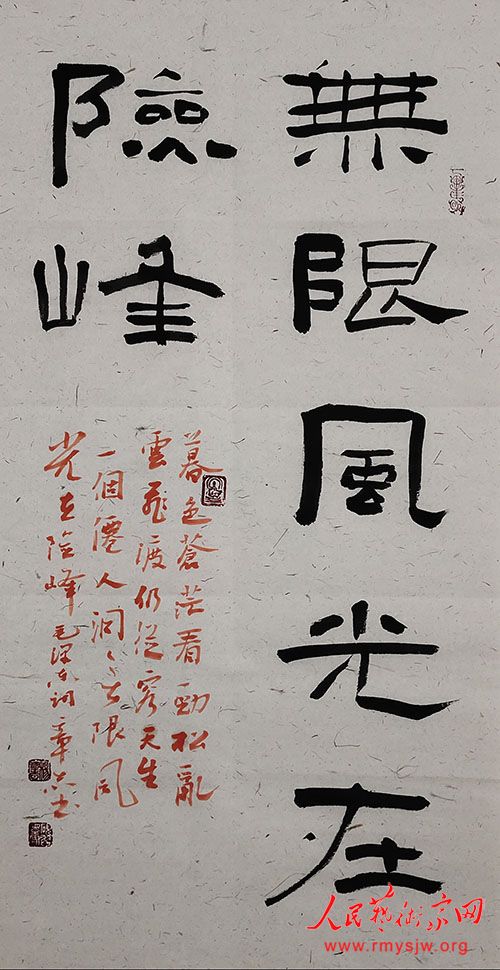 無限風光在
險峰
暮色蒼茫看勁松亂
雲飛渡仍從容天生
一個僊人洞无限风
光在险峰 毛泽东词 章
人民藝術家网
www.rmysjw.org